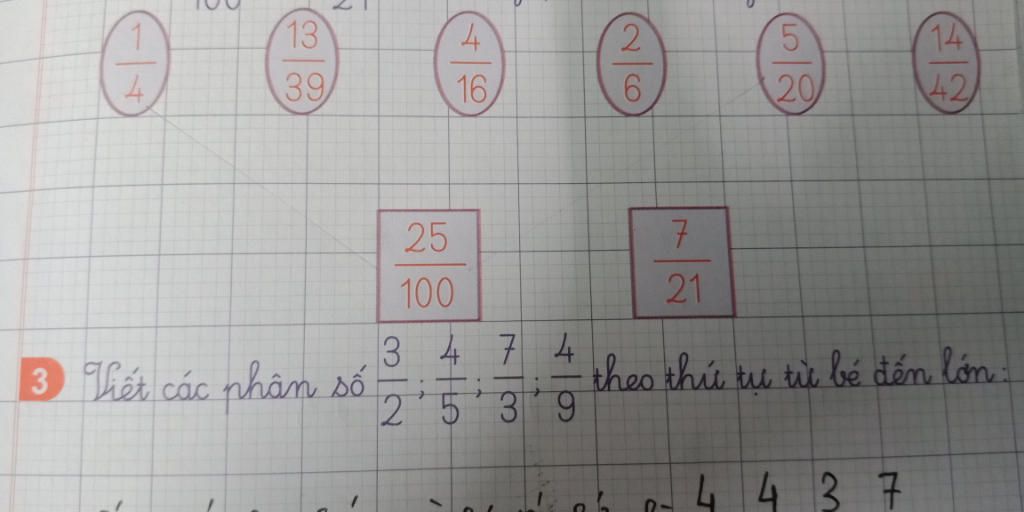 1/4 13/39 4/16 2/6 5/20 14/42
25/100 7/21
3 Viết các phân số 3/2 ; 4/5 ; 7/3 ; 4/9 theo thứ tự từ bé đến lớn:
4 4 3 7